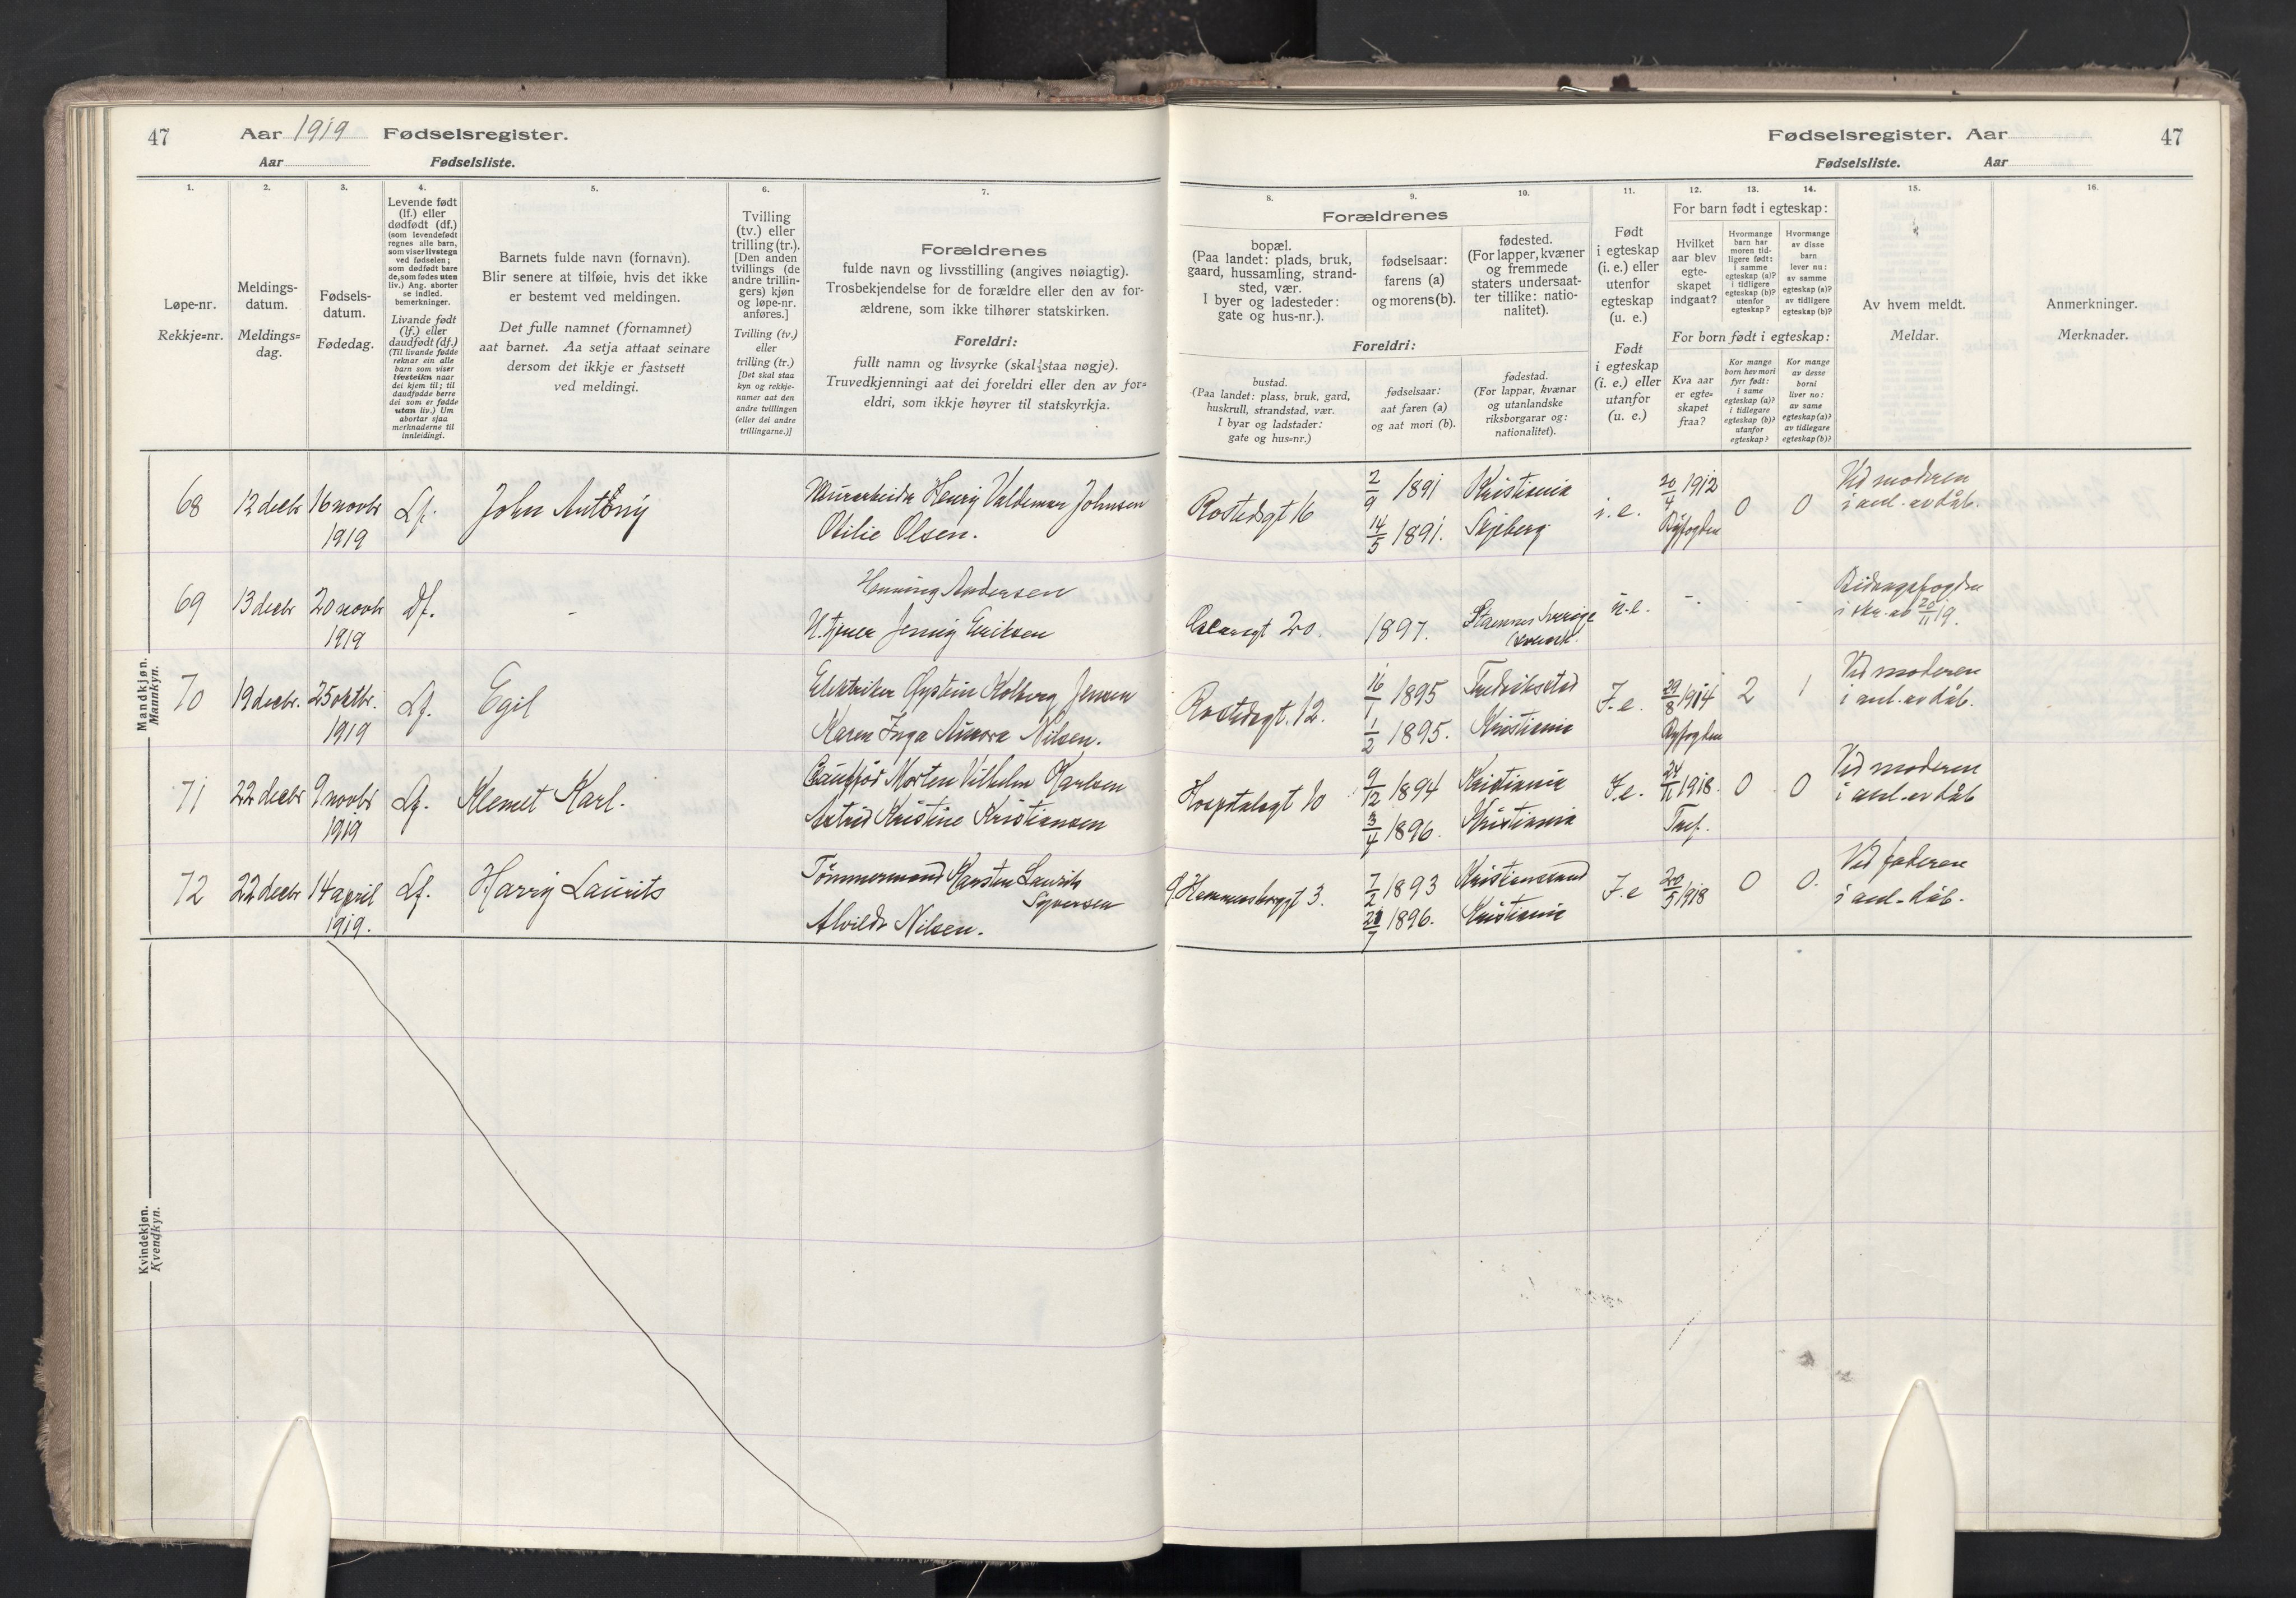 47 Aar 1919 Fødselsregister.
Aar Fødselsliste.
Fødselsregister. Aar 47
Fødselsliste. Aar
1.
Løpe-nr.
Rekkje=nr.
2.
Meldings-
datum.
Meldings=
dag.
3.
Fødsels-
datum.
Fødedag.
4.
Levende født
(lf.) eller
dødfødt (df.)
(som levendefødt
regnes alle barn,
som viser livstegn
ved fødselen;
som dødfødt bare
de, som fødes uten
liv.) Ang. aborter
se indled.
bemerkninger.
Livande født
(lf.) eller
daudfødt (df.)
(Til livande fødde
reknar ein alle
barn som viser
livsteikn naar
dei kjem til; til
daudfødde berre
dei som er fødde
utan liv.) Um
abortar sjaa
merknaderne til
innleidingi.
5.
Barnets fulde navn (fornavn).
Blir senere at tilføie, hvis det ikke
er bestemt ved meldingen.
Det fulle namnet (fornamnet)
aat barnet. Aa setja attaat seinare
dersom det ikkje er fastsett
ved meldingi.
6.
Tvilling
(tv.) eller
trilling (tr.).
[Den anden
tvillings (de
andre trillin-
gers) kjøn
og løpe-nr.
anføres.]
Tvilling (tv.)
eller
trilling (tr.)
[Det skal staa
kyn og rekkje-
numer aat den
andre tvillingen
(eller dei andre
trillingarne.)]
7.
Forældrenes
fulde navn og livsstilling (angives nøiagtig).
Trosbekjendelse for de forældre eller den av for-
ældrene, som ikke tilhører statskirken.
Foreldri:
fullt namn og livsyrke (skal staa nøgje).
Truvedkjenningi aat dei foreldri eller den av for=
eldri, som ikkje høyrer til statskyrkja.
Forældrenes
8.
bopæl.
(Paa landet: plads, bruk,
gaard, hussamling, strand-
sted, vær.
I byer og ladesteder:
gate og hus-nr.).
9.
fødselsaar:
farens (a)
og morens (b).
10.
fødested.
(For lapper, kvæner
og fremmede
staters undersaat-
ter tillike: natio-
nalitet).
Foreldri:
bustad.
(Paa landet: plass, bruk, gard,
huskrull, strandstad, vær.
I byar og ladstader:
gate og hus=nr.)
fødselsaar:
aat faren (a)
og aat mori (b).
fødestad.
(For lappar, kvænar
og utanlandske
riksborgarar og:
nationalitet).
11.
Født
i egteskap
(i. e.) eller
utenfor
egteskap
(u. e.)
Født
i egteskap
(i. e.) eller
utanfor
(u. e.)
12. 13. 14.
For barn født i egteskap:
Hvilket
aar blev
egte-
skapet
indgaat?
Hvormange
barn har
moren tid-
ligere født:
i samme
egteskap (a)?
i tidligere
egteskap (b)?
utenfor
egteskap?
Hvormange
av disse
barn
lever nu:
av samme
egteskap (a)?
av tidligere
egteskap (b)?
For born født i egteskap:
Kva aar
er egte=
skapet
fraa?
Kor mange
born hev mori
fyrr født:
i same
egteskap (a)?
i tidlegare
egteskap (b)?
utanfor
egteskap?
Kor mange
av desse
borni
liver no:
av same
egteskap (a)?
av tidlegare
egteskap (b)?
15.
Av hvem meldt.
Meldar.
16.
Anmerkninger.
Merknader.
Mandkjøn.
Mannkyn.
68 12 decbr 16 novbr Lf. John Antony Murarbeider Henry Valdemar Johnsen Rostedsgt 16 2/9 1891 Kristiania i. e. 20/4 1912 0 0 Ved moderen
1919 Otilie Olsen. 14/5 1891. Skjeberg Byfogden i anl. av dåb.
69 13 decbr 20 novbr Df. - Henning Andersen u. e. - Bidragsfogden
1919 H.tjener Jenny Eriksen 20. 1897. Sverige i skr. av 20/11 19.
70 19 decbr. 25 oktbr. Lf. Egil Elektriker Øystein Kolberg Jensen Rostedsgt. 12. 16/1 1895 Fredrikstad I. e. 29/8 1914 2 1 Ved moderen
1919 Karen Inga Aurora Nilsen. 1/2 1895. Kristiania Byfogden i anl. av dåb.
71 22 decbr 9 novbr Lf. Klemet Karl. Morten Vilhelm Karlsen Hospitalsgt 10 9/12 1894 Kristiania I. e. 24/11 1918. 0 0 Ved moderen
1919 Astrid Kristine Kristiansen 3/4 1896. Kristiania Tref. i anl. av dåb
72 22 decbr 14 april Lf. Harry Laurits Tømmermand Karsten Laurits Hammersborggt 3. 7/2 1893 Kristiansund I. e 20/5 1918 0 0. Ved faderen
Syversen
1919. Alvilde Nilsen. 21/7 1896. Kristiania i anl. dåb.
Kvindekjøn.
Kvendkyn.